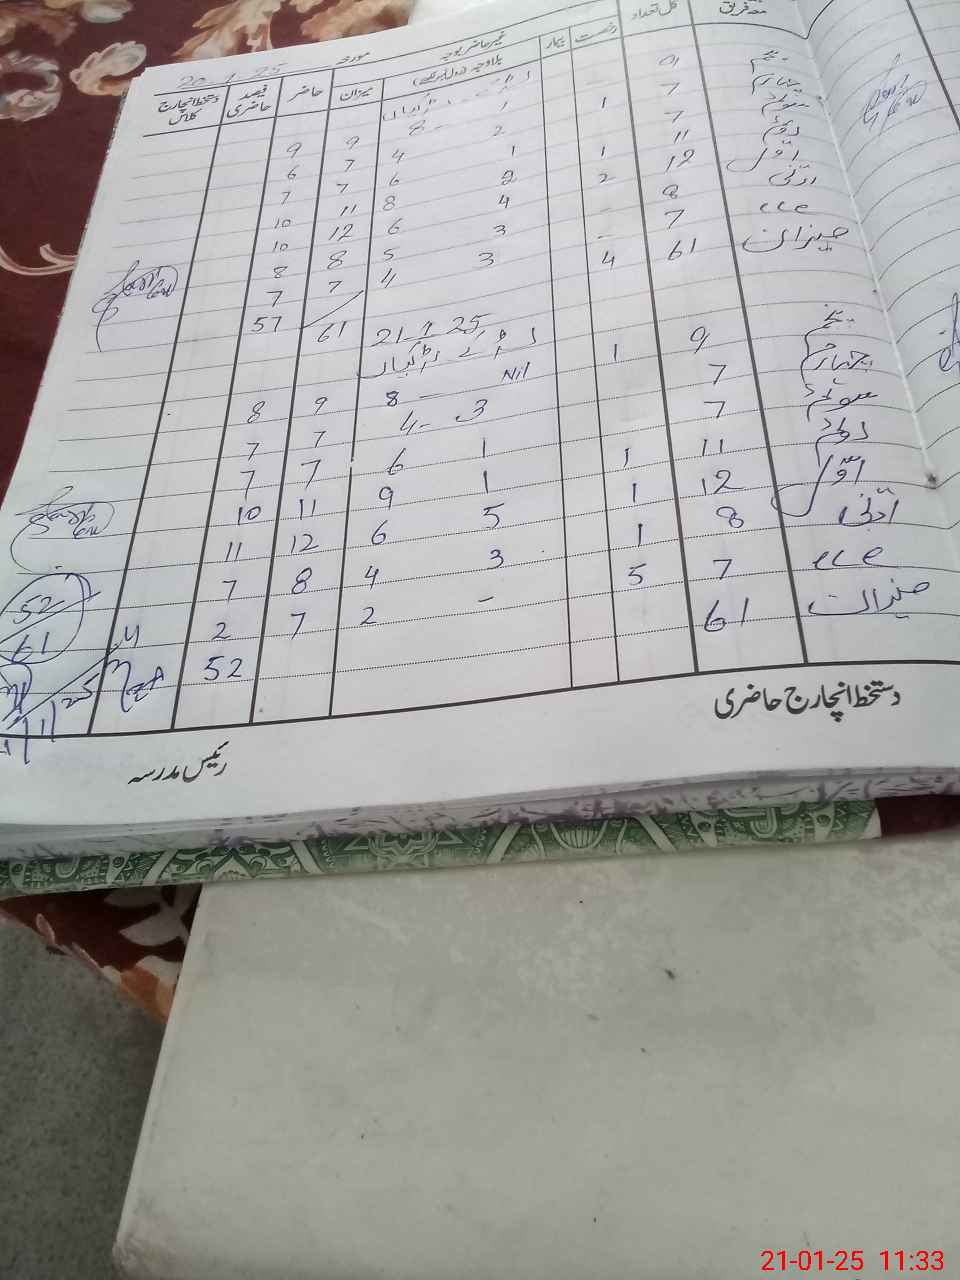 معہ فریق کل تعداد رخصت بیمار غیر حاضر بوجہ مورخہ 20-1-25
بلاوجہ میزان حاضر فیصد حاضری دستخط انچارج کلاس
پنجم 9
چہارم 7 1 8 - 1 9 9
سوئم 7 4 2 7 6
دوئم 11 1 6 1 7 7
اول 12 2 8 2 11 10
ادنیٰ 8 6 4 12 10
ece 7 - 5 3 8 8
میزان 61 4 4 3 7 7
61 57
21-1-25
لڑکے لڑکیاں
پنجم 9 1 8 Nil 9 8
چہارم 7 4 - 3 7 7
سوئم 7 6 1 7 7
دوئم 11 1 9 1 11 10
اول 12 1 6 5 12 11
ادنیٰ 8 1 4 3 8 7
ece 7 5 2 - 7 2
میزان 61 52
52
61
دستخط انچارج حاضری
رئیس مدرسہ
21-01-25 11:33